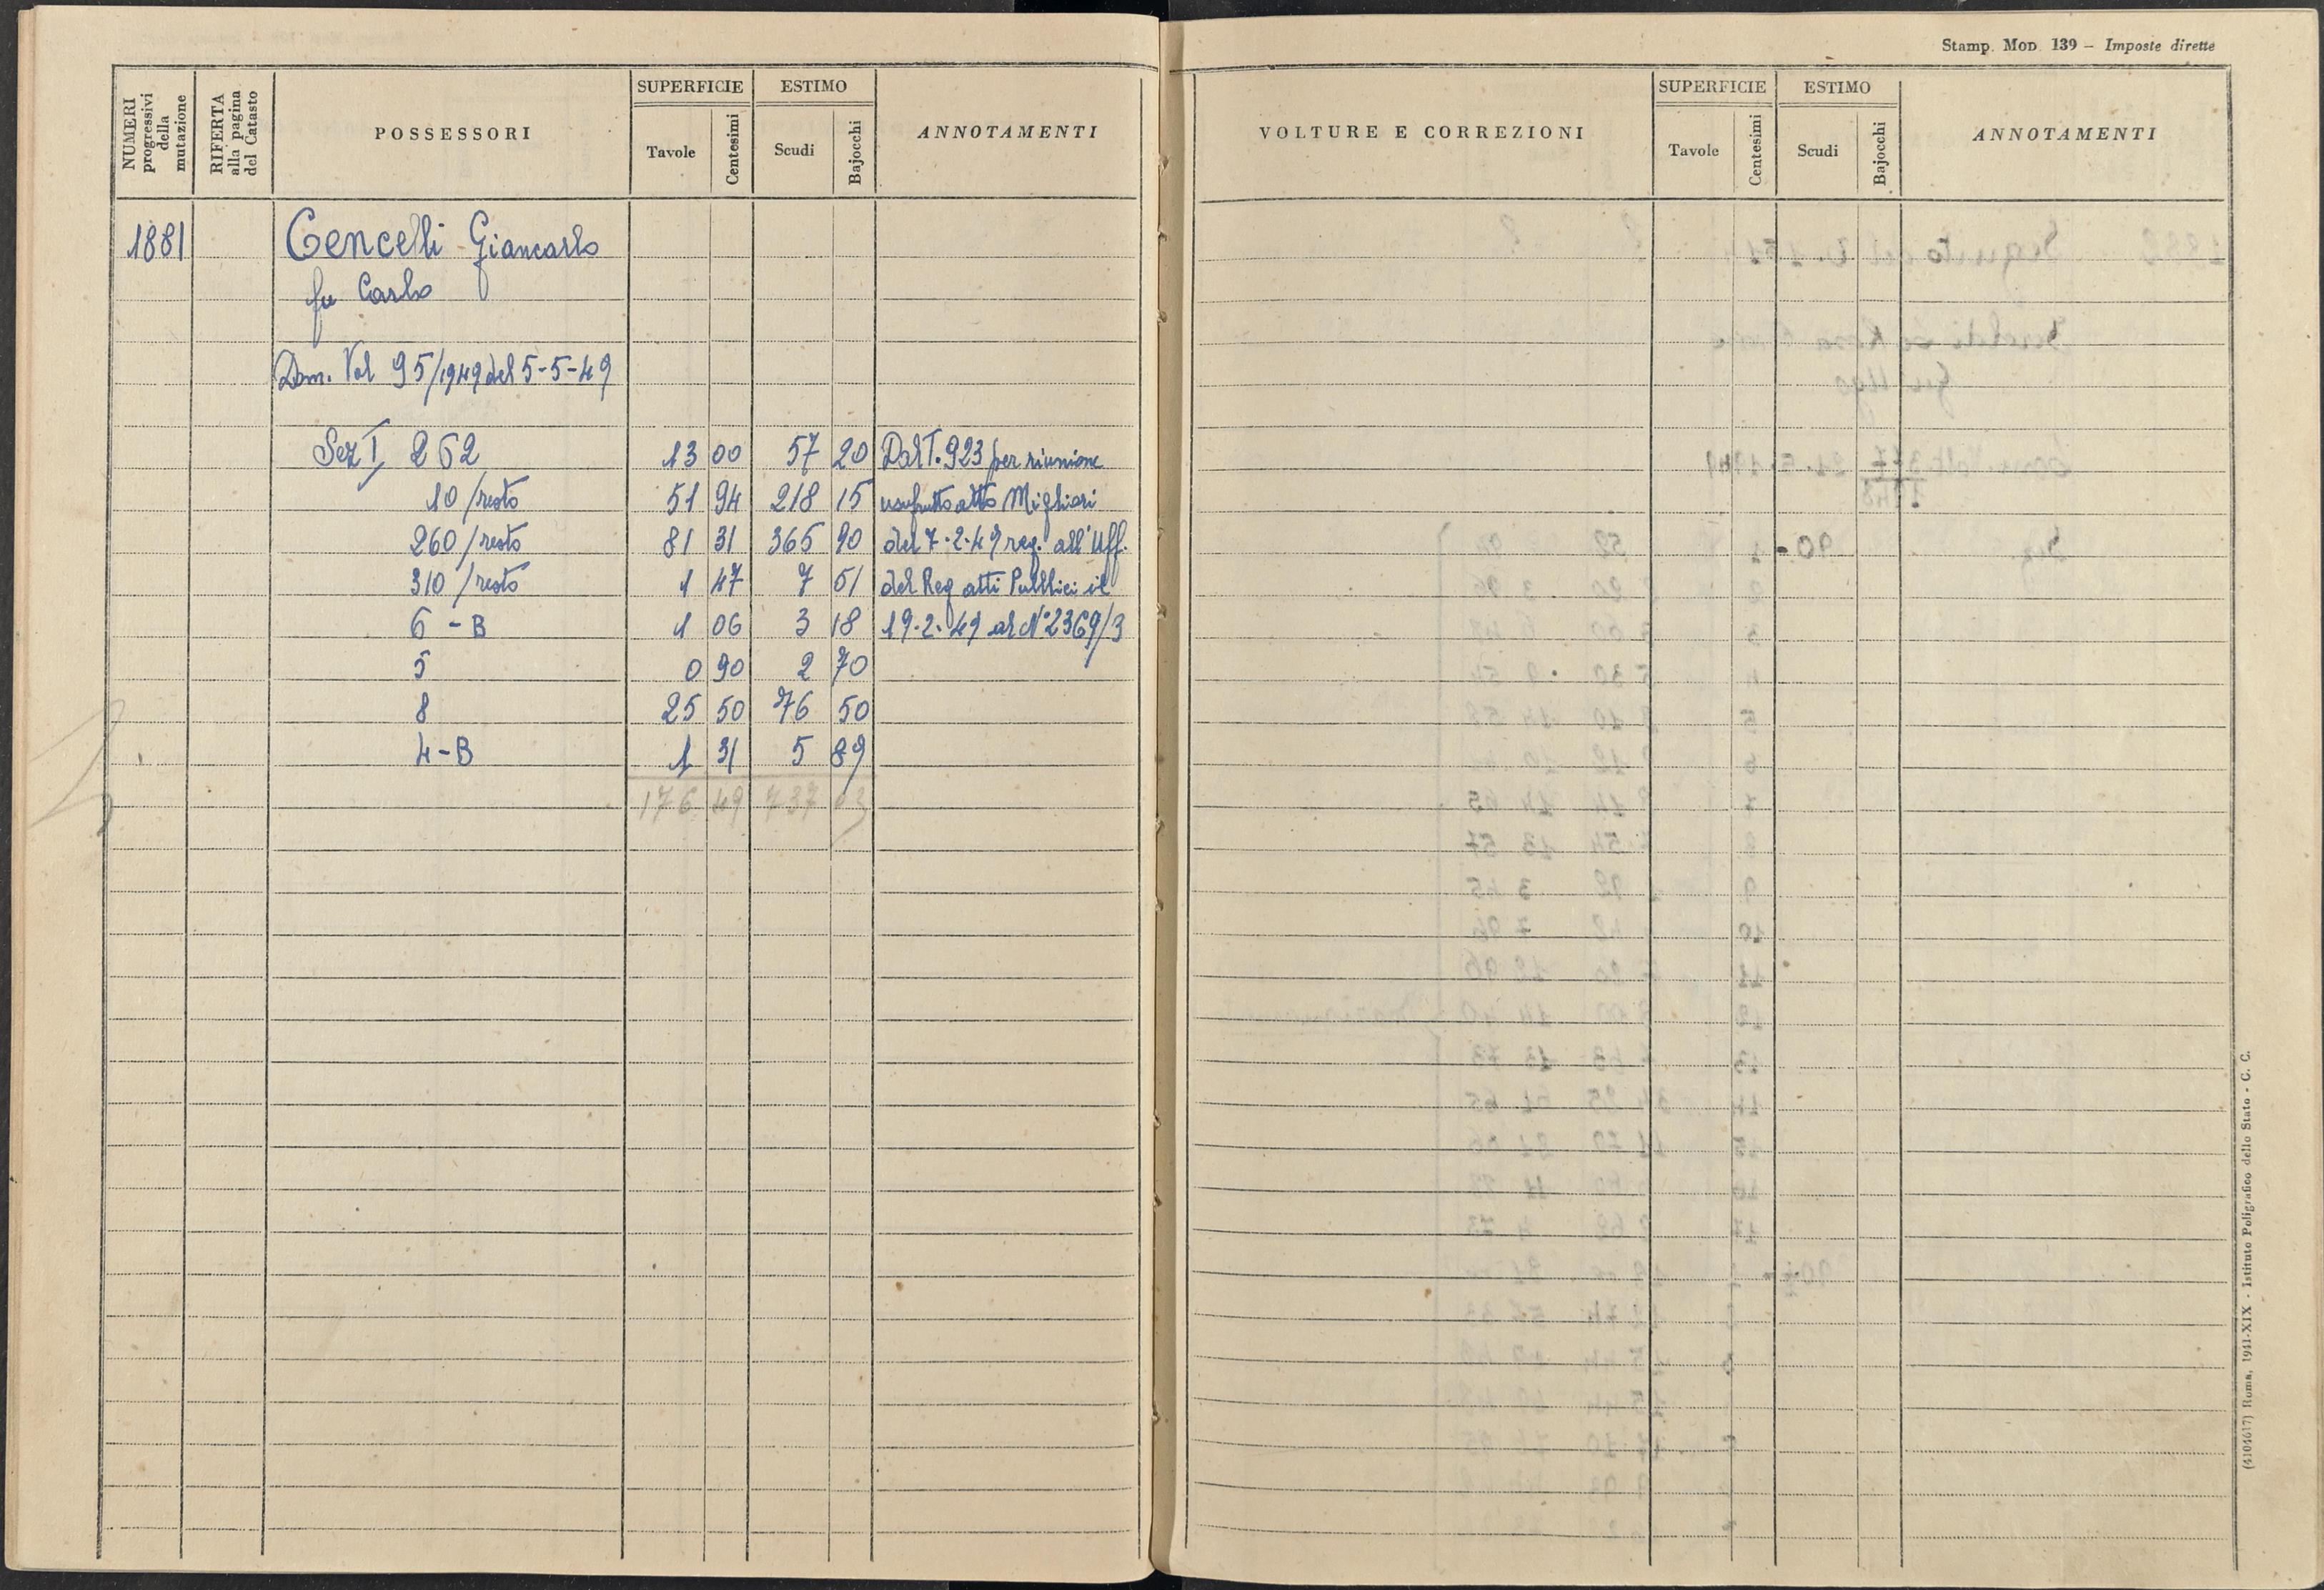 Stamp. Mod. 139 – Imposte dirette
NUMERI progressivi della mutazione
RIFERTA alla pagina del Catasto
POSSESSORI
SUPERFICIE
Tavole
Centesimi
ESTIMO
Scudi
Bajocchi
ANNOTAMENTI
VOLTURE E CORREZIONI
SUPERFICIE
Tavole
Centesimi
ESTIMO
Scudi
Bajocchi
ANNOTAMENTI
1881 Cencelli Giancarlo
fu Carlo
Dom. Vol 95/1949 del 5-5-49
Sez I 262 13 00 57 20 Dal T. 923 per riunione
10/resto 51 94 218 15 usufrutto atto Migliori
260/resto 81 31 365 90 del 7-2-49 reg. all'Uff.
310/resto 1 47 7 51 del Reg atti Pubblici il
6-B 1 06 3 18 19-2-49 al N° 2369/3
5 0 90 2 70
8 25 50 76 50
4-B 1 31 5 89
176 49 737 03
(4104617) Roma, 1941-XIX - Istituto Poligrafico dello Stato - C. C.